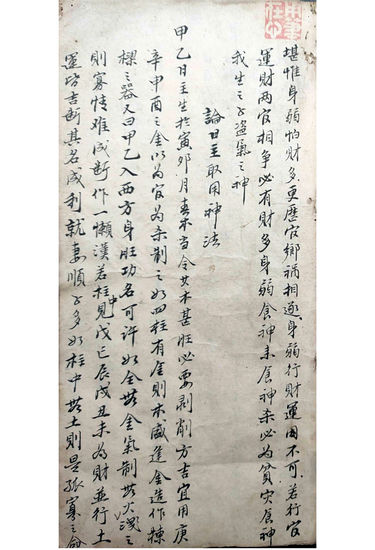 堪惟身弱怕財多更歷官鄉禍相逐身弱行財運固不可若行官
運財两官相争必有財多身弱食神未食神杀必為貧灾食神
我生之子盗氣之神
論日主取用神法
甲乙日主生於寅夘月春木当令其木甚旺必要剥削方吉宜用庚
辛申酉之金以為官為杀制之如四柱有金則木盛逢金造作棟
樑之器又曰甲乙入西方身旺功名可許如金無金氣制無火洩之
則寡情难成断作一懶漢若柱中見戊己辰戌丑未為財並行土
運皆吉断其名成利就妻順子多如柱中無土則是孤寡之命